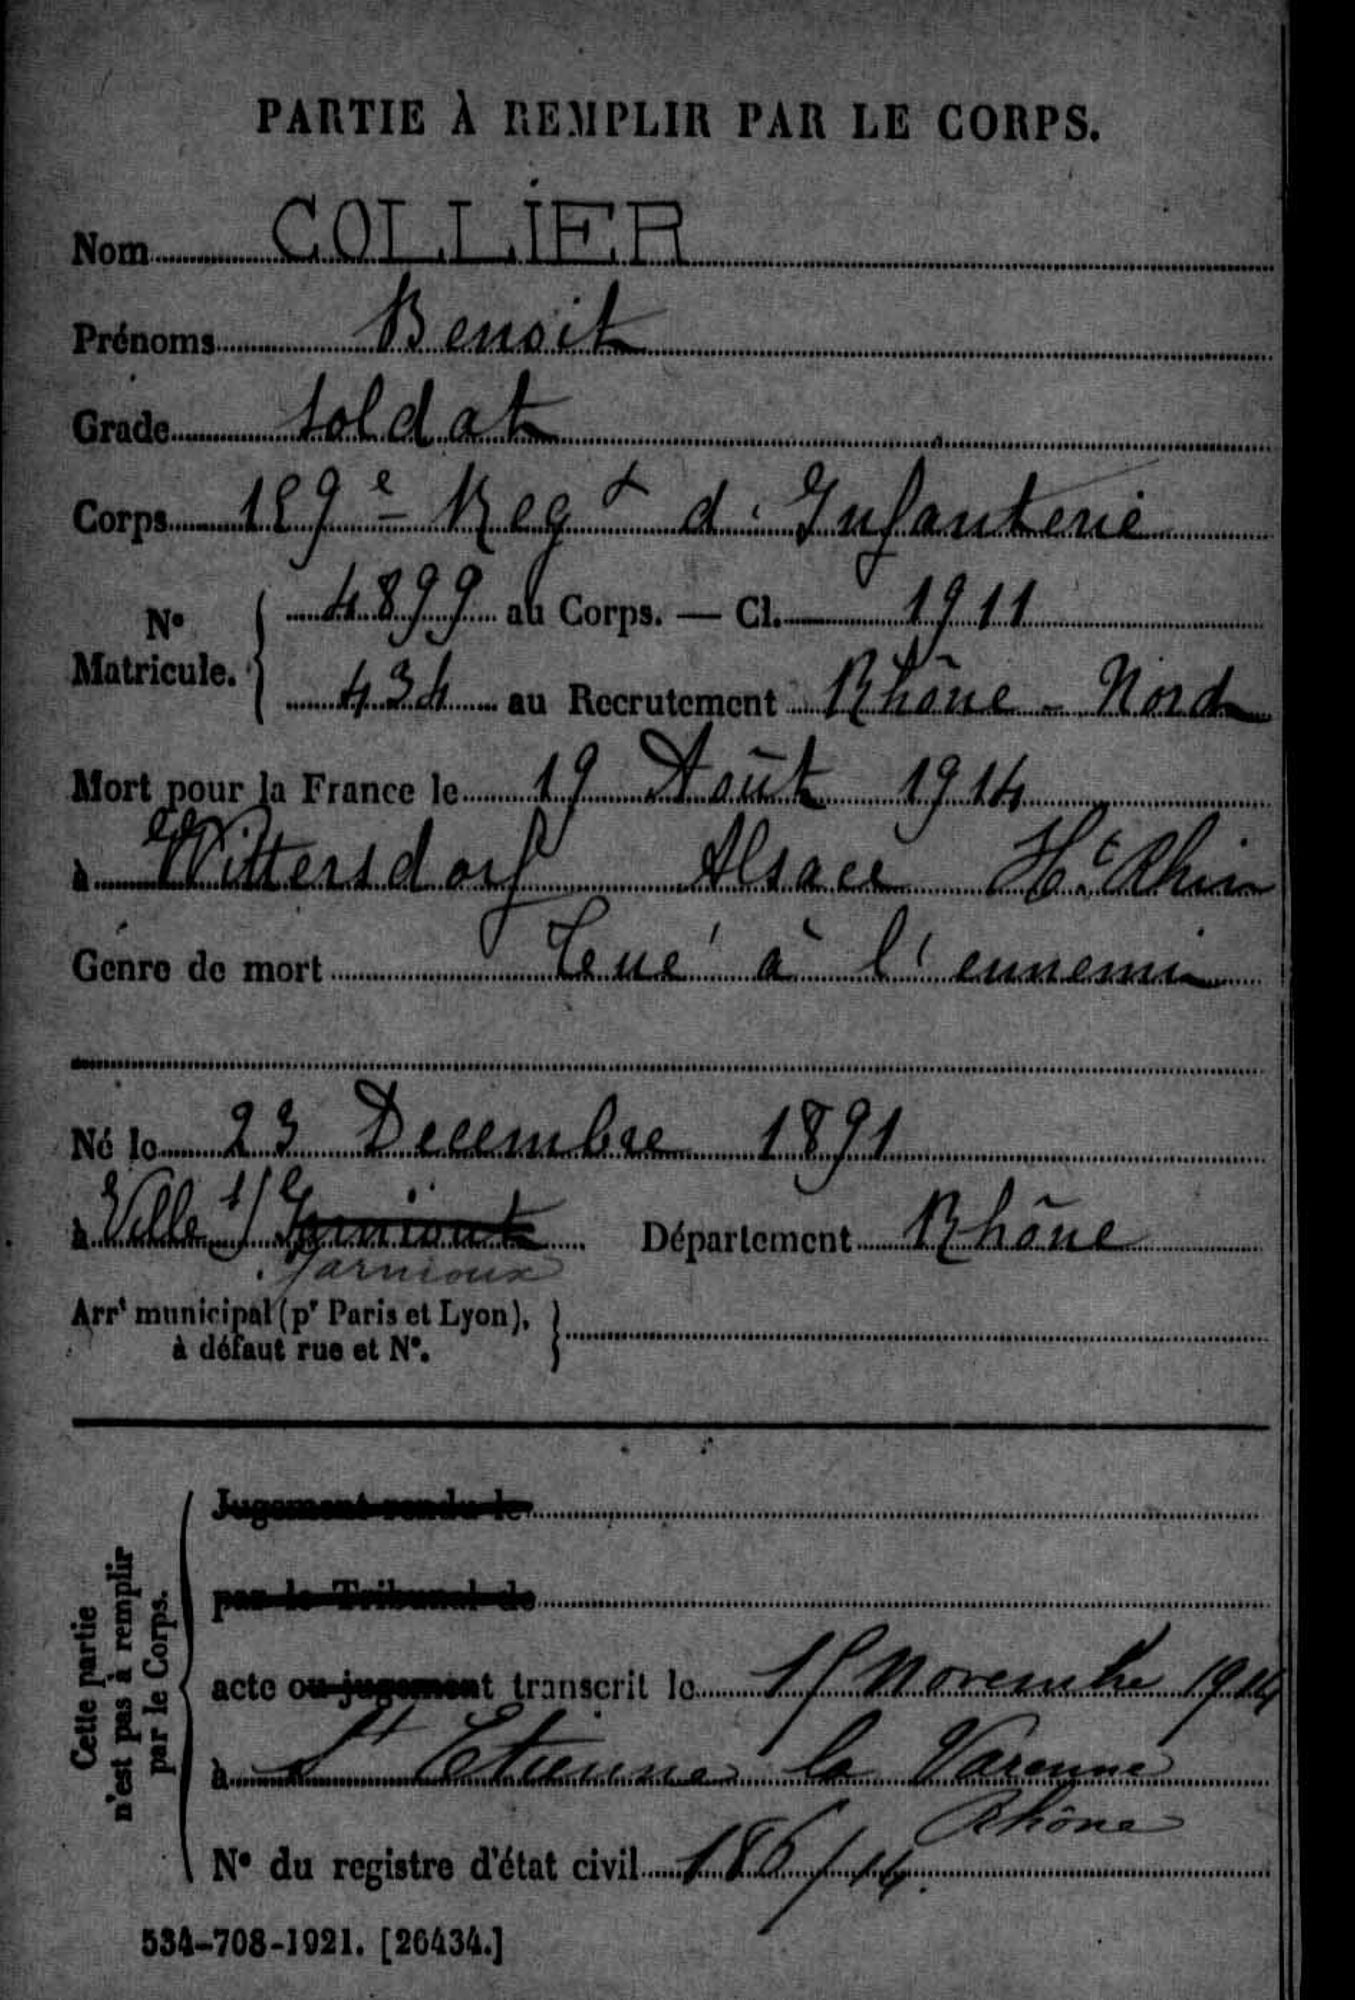 PARTIE À REMPLIR PAR LE CORPS.
Nom COLLIER
Prénoms Benoit
Grade soldat
Corps 159e Regt d'Infanterie
No Matricule. 4899 au Corps. — Cl. 1911
434 au Recrutement Rhône - Nord
Mort pour la France le 19 Août 1914
à Wittersdorf Alsace Ht Rhin
Genre de mort Tué à l'ennemi
Né le 23 Decembre 1891
à Ville s/ Jarnioux Département Rhône
Jarnioux
Arrt municipal (pr Paris et Lyon),
à défaut rue et No.
Cette partie
n'est pas à remplir
par le Corps.
Jugement rendu le
par le Tribunal de
acte ou jugement transcrit le 15 Novembre 1914
à St Etienne la Varenne
Rhône
No du registre d'état civil
534-708-1921. [26434.]